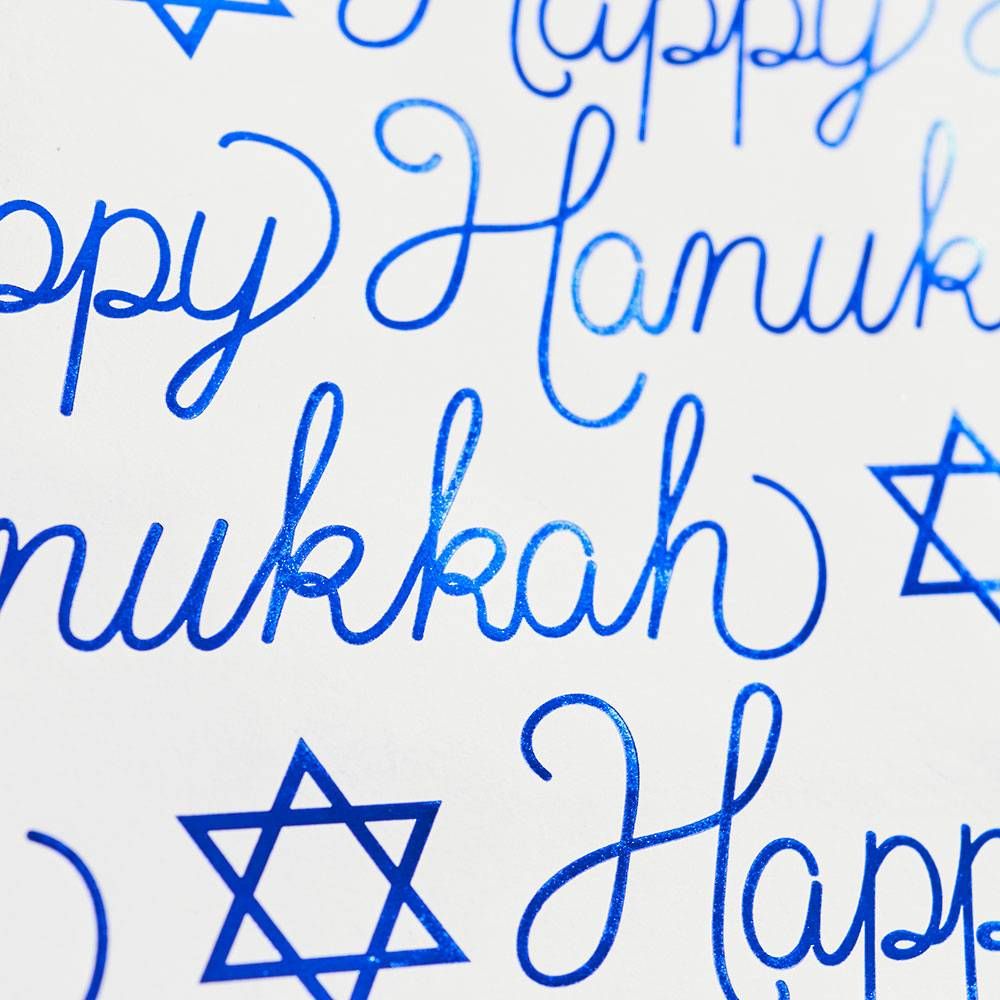 Happy
ppy Hanuk
nukkah
Happ